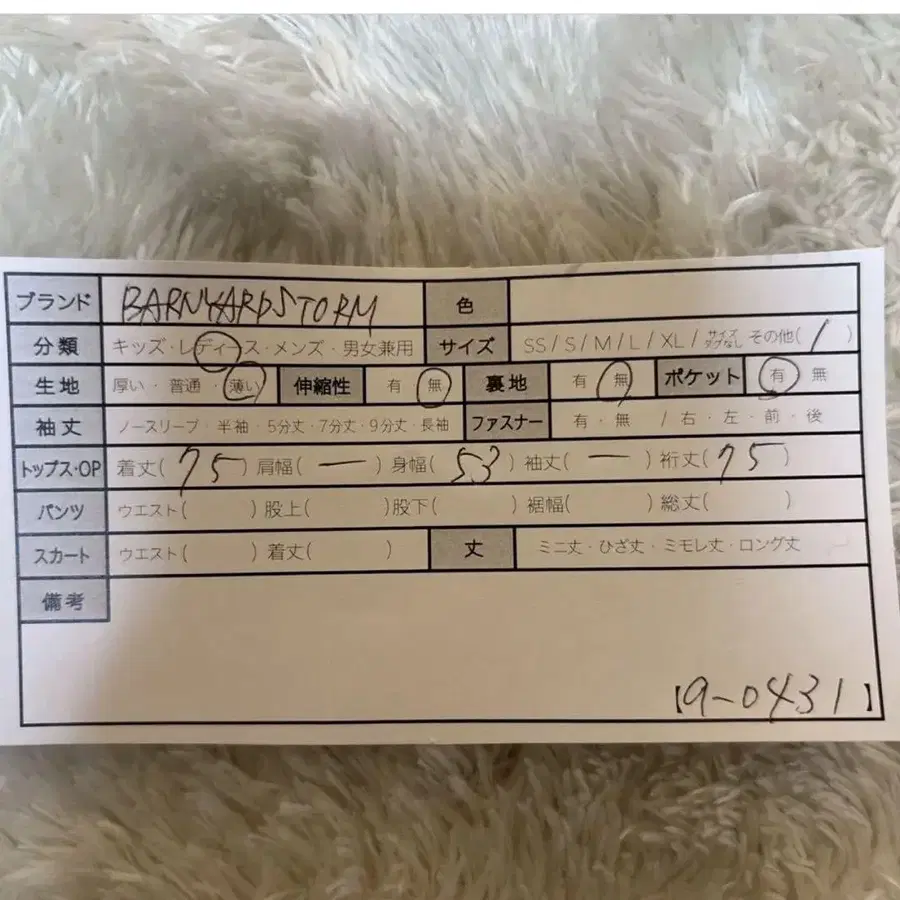 ブランド BARNYARDSTORM 色
分類 キッズ・レディース・メンズ・男女兼用 サイズ SS/S/M/L/XL/サイズタグなし その他(1)
生地 厚い・普通・薄い 伸縮性 有・無 裏地 有・無 ポケット 有・無
袖丈 ノースリーブ・半袖・5分丈・7分丈・9分丈・長袖 ファスナー 有・無 /右・左・前・後
トップス・OP 着丈(75)肩幅(ー)身幅(53)袖丈(ー)裄丈(75)
パンツ ウエスト( )股上( )股下( )裾幅( )総丈( )
スカート ウエスト( )着丈( ) 丈 ミニ丈・ひざ丈・ミモレ丈・ロング丈
備考
【9-0431】